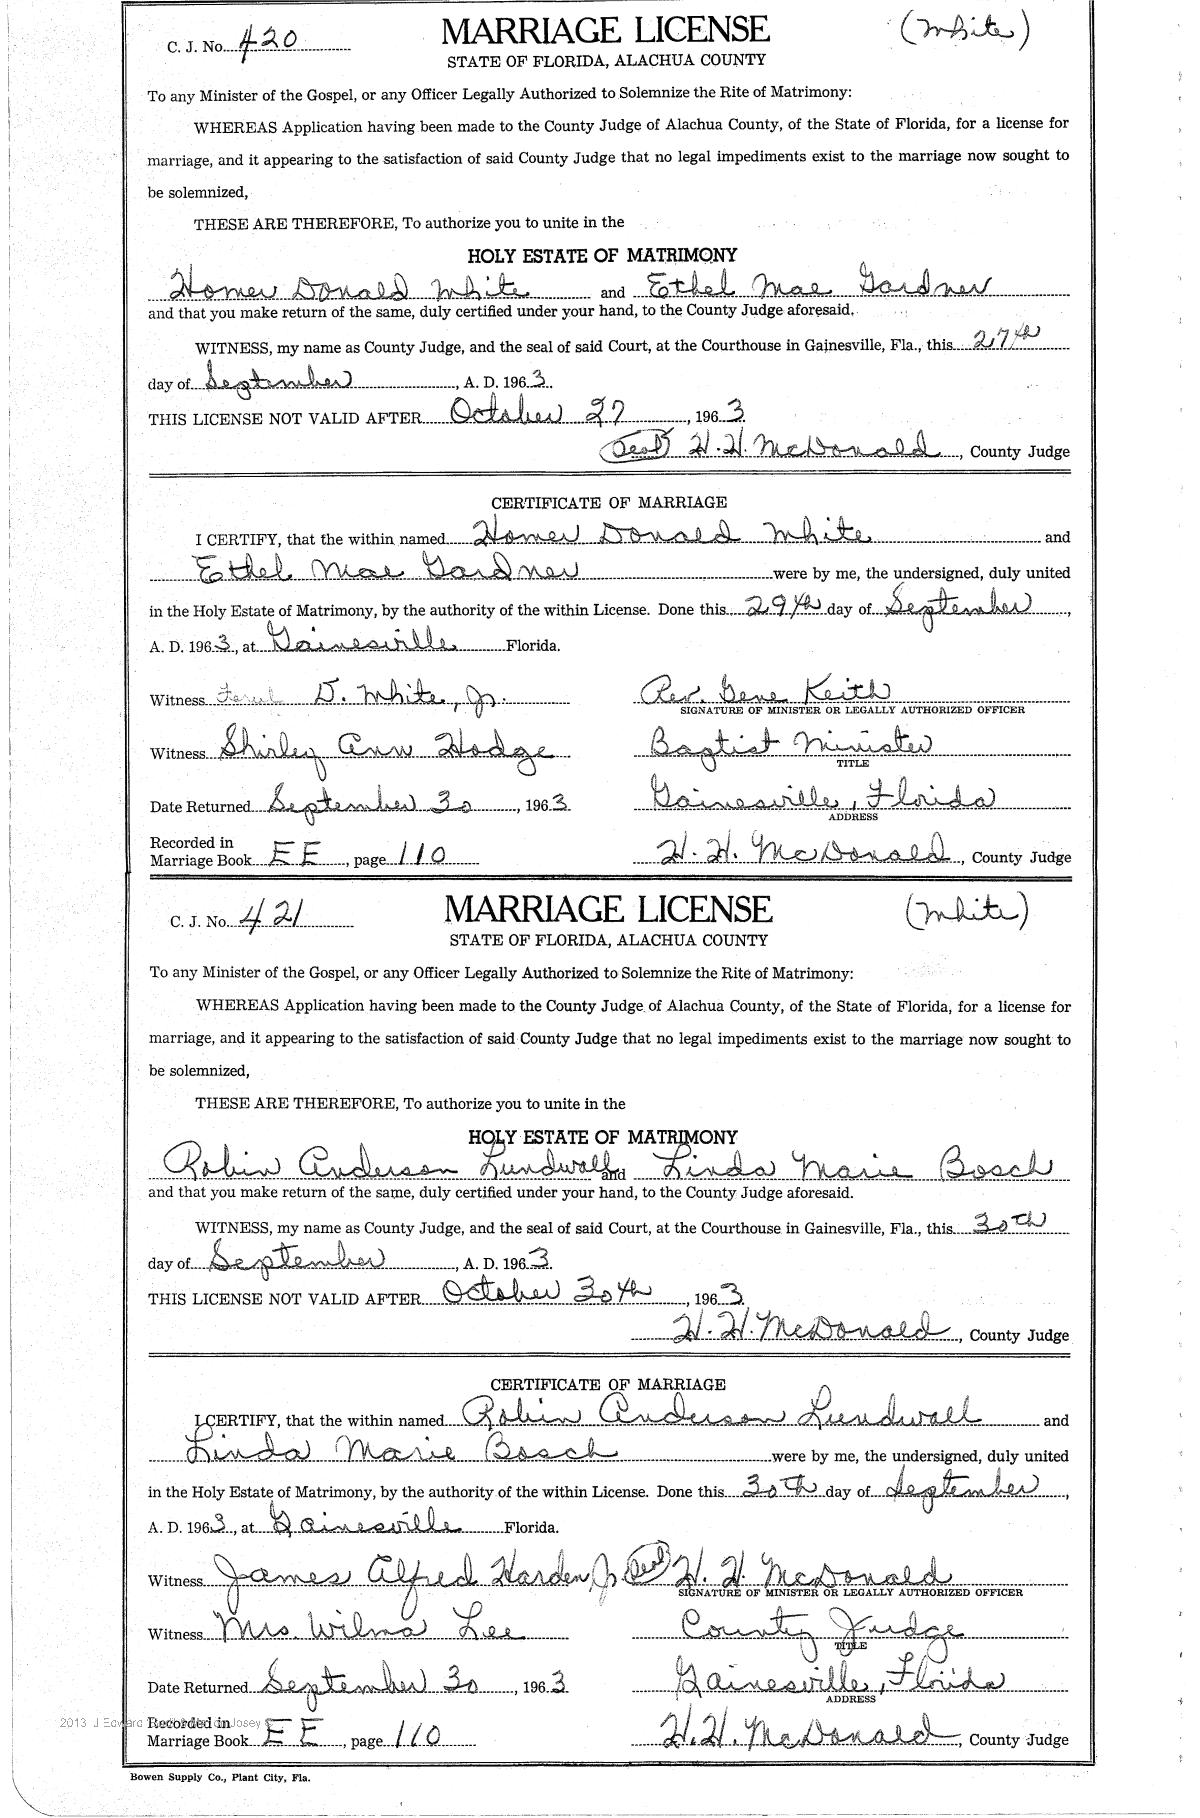 C. J. No. 420 MARRIAGE LICENSE (White)
STATE OF FLORIDA, ALACHUA COUNTY
To any Minister of the Gospel, or any Officer Legally Authorized to Solemnize the Rite of Matrimony:
WHEREAS Application having been made to the County Judge of Alachua County, of the State of Florida, for a license for
marriage, and it appearing to the satisfaction of said County Judge that no legal impediments exist to the marriage now sought to
be solemnized,
THESE ARE THEREFORE, To authorize you to unite in the
HOLY ESTATE OF MATRIMONY
Homer Donald White and Ethel Mae Gardner
and that you make return of the same, duly certified under your hand, to the County Judge aforesaid.
WITNESS, my name as County Judge, and the seal of said Court, at the Courthouse in Gainesville, Fla., this 27th
day of September, A. D. 1963.
THIS LICENSE NOT VALID AFTER October 27, 1963
(Seal) H. H. McDonald, County Judge
CERTIFICATE OF MARRIAGE
I CERTIFY, that the within named Homer Donald White and
Ethel Mae Gardner were by me, the undersigned, duly united
in the Holy Estate of Matrimony, by the authority of the within License. Done this 29th day of September,
A. D. 1963, at Gainesville Florida.
Witness D. White, Jr. Rev. Gene Keith
SIGNATURE OF MINISTER OR LEGALLY AUTHORIZED OFFICER
Witness Shirley Ann Hodge Baptist Minister
TITLE
Date Returned September 30, 1963 Gainesville, Florida
ADDRESS
Recorded in
Marriage Book EE, page 110 H. H. McDonald, County Judge
C. J. No. 421 MARRIAGE LICENSE (White)
STATE OF FLORIDA, ALACHUA COUNTY
To any Minister of the Gospel, or any Officer Legally Authorized to Solemnize the Rite of Matrimony:
WHEREAS Application having been made to the County Judge of Alachua County, of the State of Florida, for a license for
marriage, and it appearing to the satisfaction of said County Judge that no legal impediments exist to the marriage now sought to
be solemnized,
THESE ARE THEREFORE, To authorize you to unite in the
HOLY ESTATE OF MATRIMONY
Robin Anderson Lundwall and Linda Marie Bosch
and that you make return of the same, duly certified under your hand, to the County Judge aforesaid.
WITNESS, my name as County Judge, and the seal of said Court, at the Courthouse in Gainesville, Fla., this 30th
day of September, A. D. 1963.
THIS LICENSE NOT VALID AFTER October 30th, 1963
H. H. McDonald, County Judge
CERTIFICATE OF MARRIAGE
I CERTIFY, that the within named Robin Anderson Lundwall and
Linda Marie Bosch were by me, the undersigned, duly united
in the Holy Estate of Matrimony, by the authority of the within License. Done this 30th day of September,
A. D. 1963, at Gainesville Florida.
Witness James Alfred Harden Jr. (Seal) H. H. McDonald
SIGNATURE OF MINISTER OR LEGALLY AUTHORIZED OFFICER
Witness Mrs. Wilma Lee County Judge
TITLE
Date Returned September 30, 1963 Gainesville, Florida
ADDRESS
2013 J Josey
Recorded in
Marriage Book EE, page 110 H. H. McDonald, County Judge
Bowen Supply Co., Plant City, Fla.